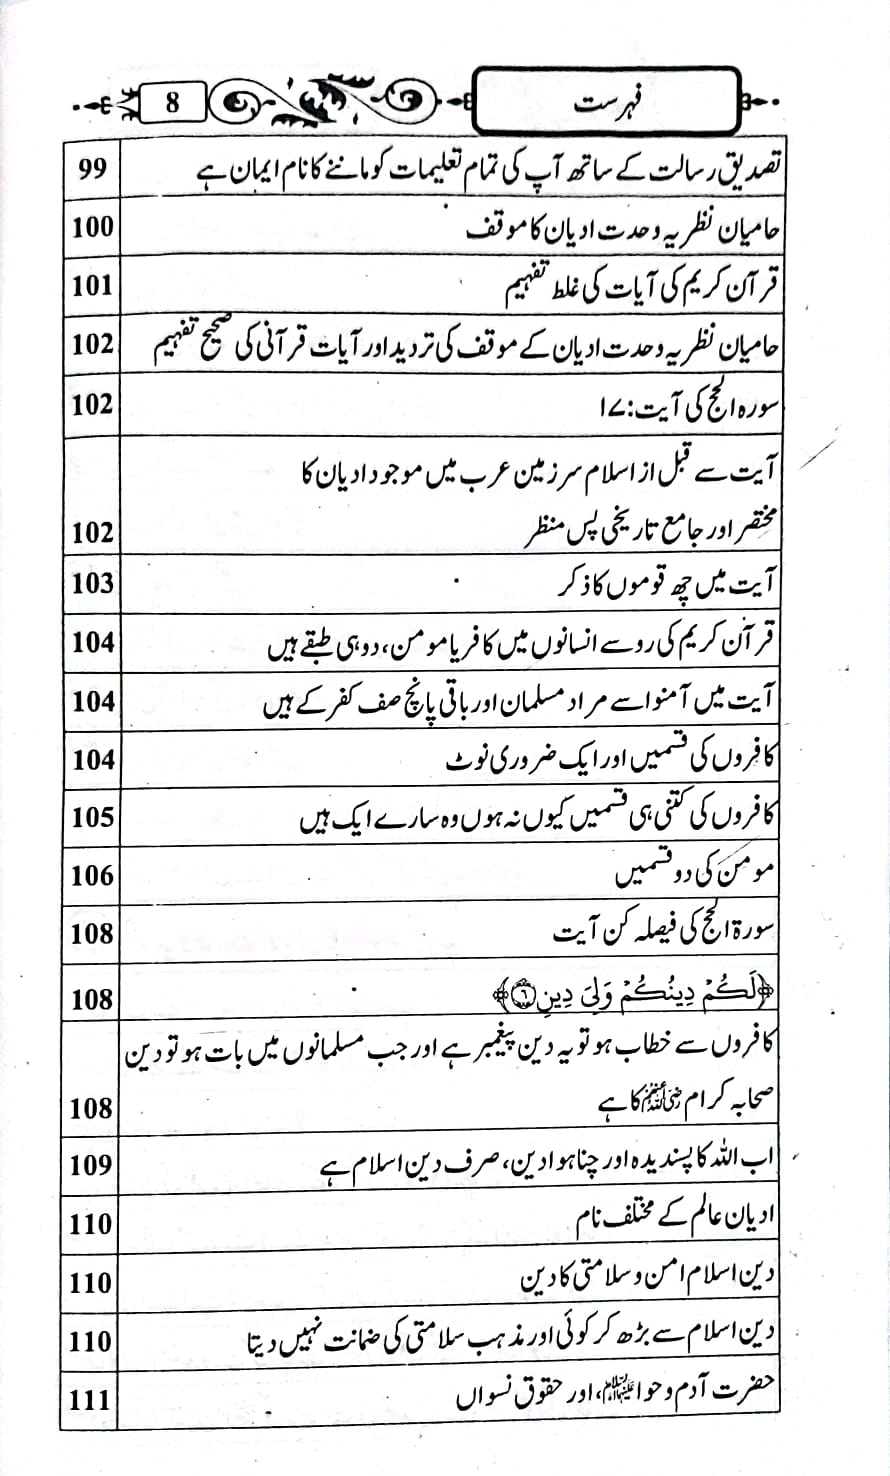 فہرست 8
تصدیق رسالت کے ساتھ آپ کی تمام تعلیمات کو ماننے کا نام ایمان ہے 99
حامیان نظریہ وحدت ادیان کا موقف 100
قرآن کریم کی آیات کی غلط تفہیم 101
حامیان نظریہ وحدت ادیان کے موقف کی تردید اور آیات قرآنی کی صحیح تفہیم 102
سورہ الحج کی آیت: ۱۷ 102
آیت سے قبل از اسلام سرزمین عرب میں موجود ادیان کا
مختصر اور جامع تاریخی پس منظر 102
آیت میں چھ قوموں کا ذکر 103
قرآن کریم کی رو سے انسانوں میں کافر یا مومن، دو ہی طبقے ہیں 104
آیت میں آمنوا سے مراد مسلمان اور باقی پانچ صف کفر کے ہیں 104
کافروں کی قسمیں اور ایک ضروری نوٹ 104
کافروں کی کتنی ہی قسمیں کیوں نہ ہوں وہ سارے ایک ہیں 105
مومن کی دو قسمیں 106
سورۃ الحج کی فیصلہ کن آیت 108
﴿لَكُمْ دِينُكُمْ وَلِيَ دِينِ ۝٦﴾ 108
کافروں سے خطاب ہو تو یہ دین پیغمبر ہے اور جب مسلمانوں میں بات ہو تو دین
صحابہ کرام رضی اللہ عنہم کا ہے 108
اب اللہ کا پسندیدہ اور چنا ہوا دین، صرف دین اسلام ہے 109
ادیان عالم کے مختلف نام 110
دین اسلام امن و سلامتی کا دین 110
دین اسلام سے بڑھ کر کوئی اور مذہب سلامتی کی ضمانت نہیں دیتا 110
حضرت آدم و حوا علیہما السلام، اور حقوق نسواں 111